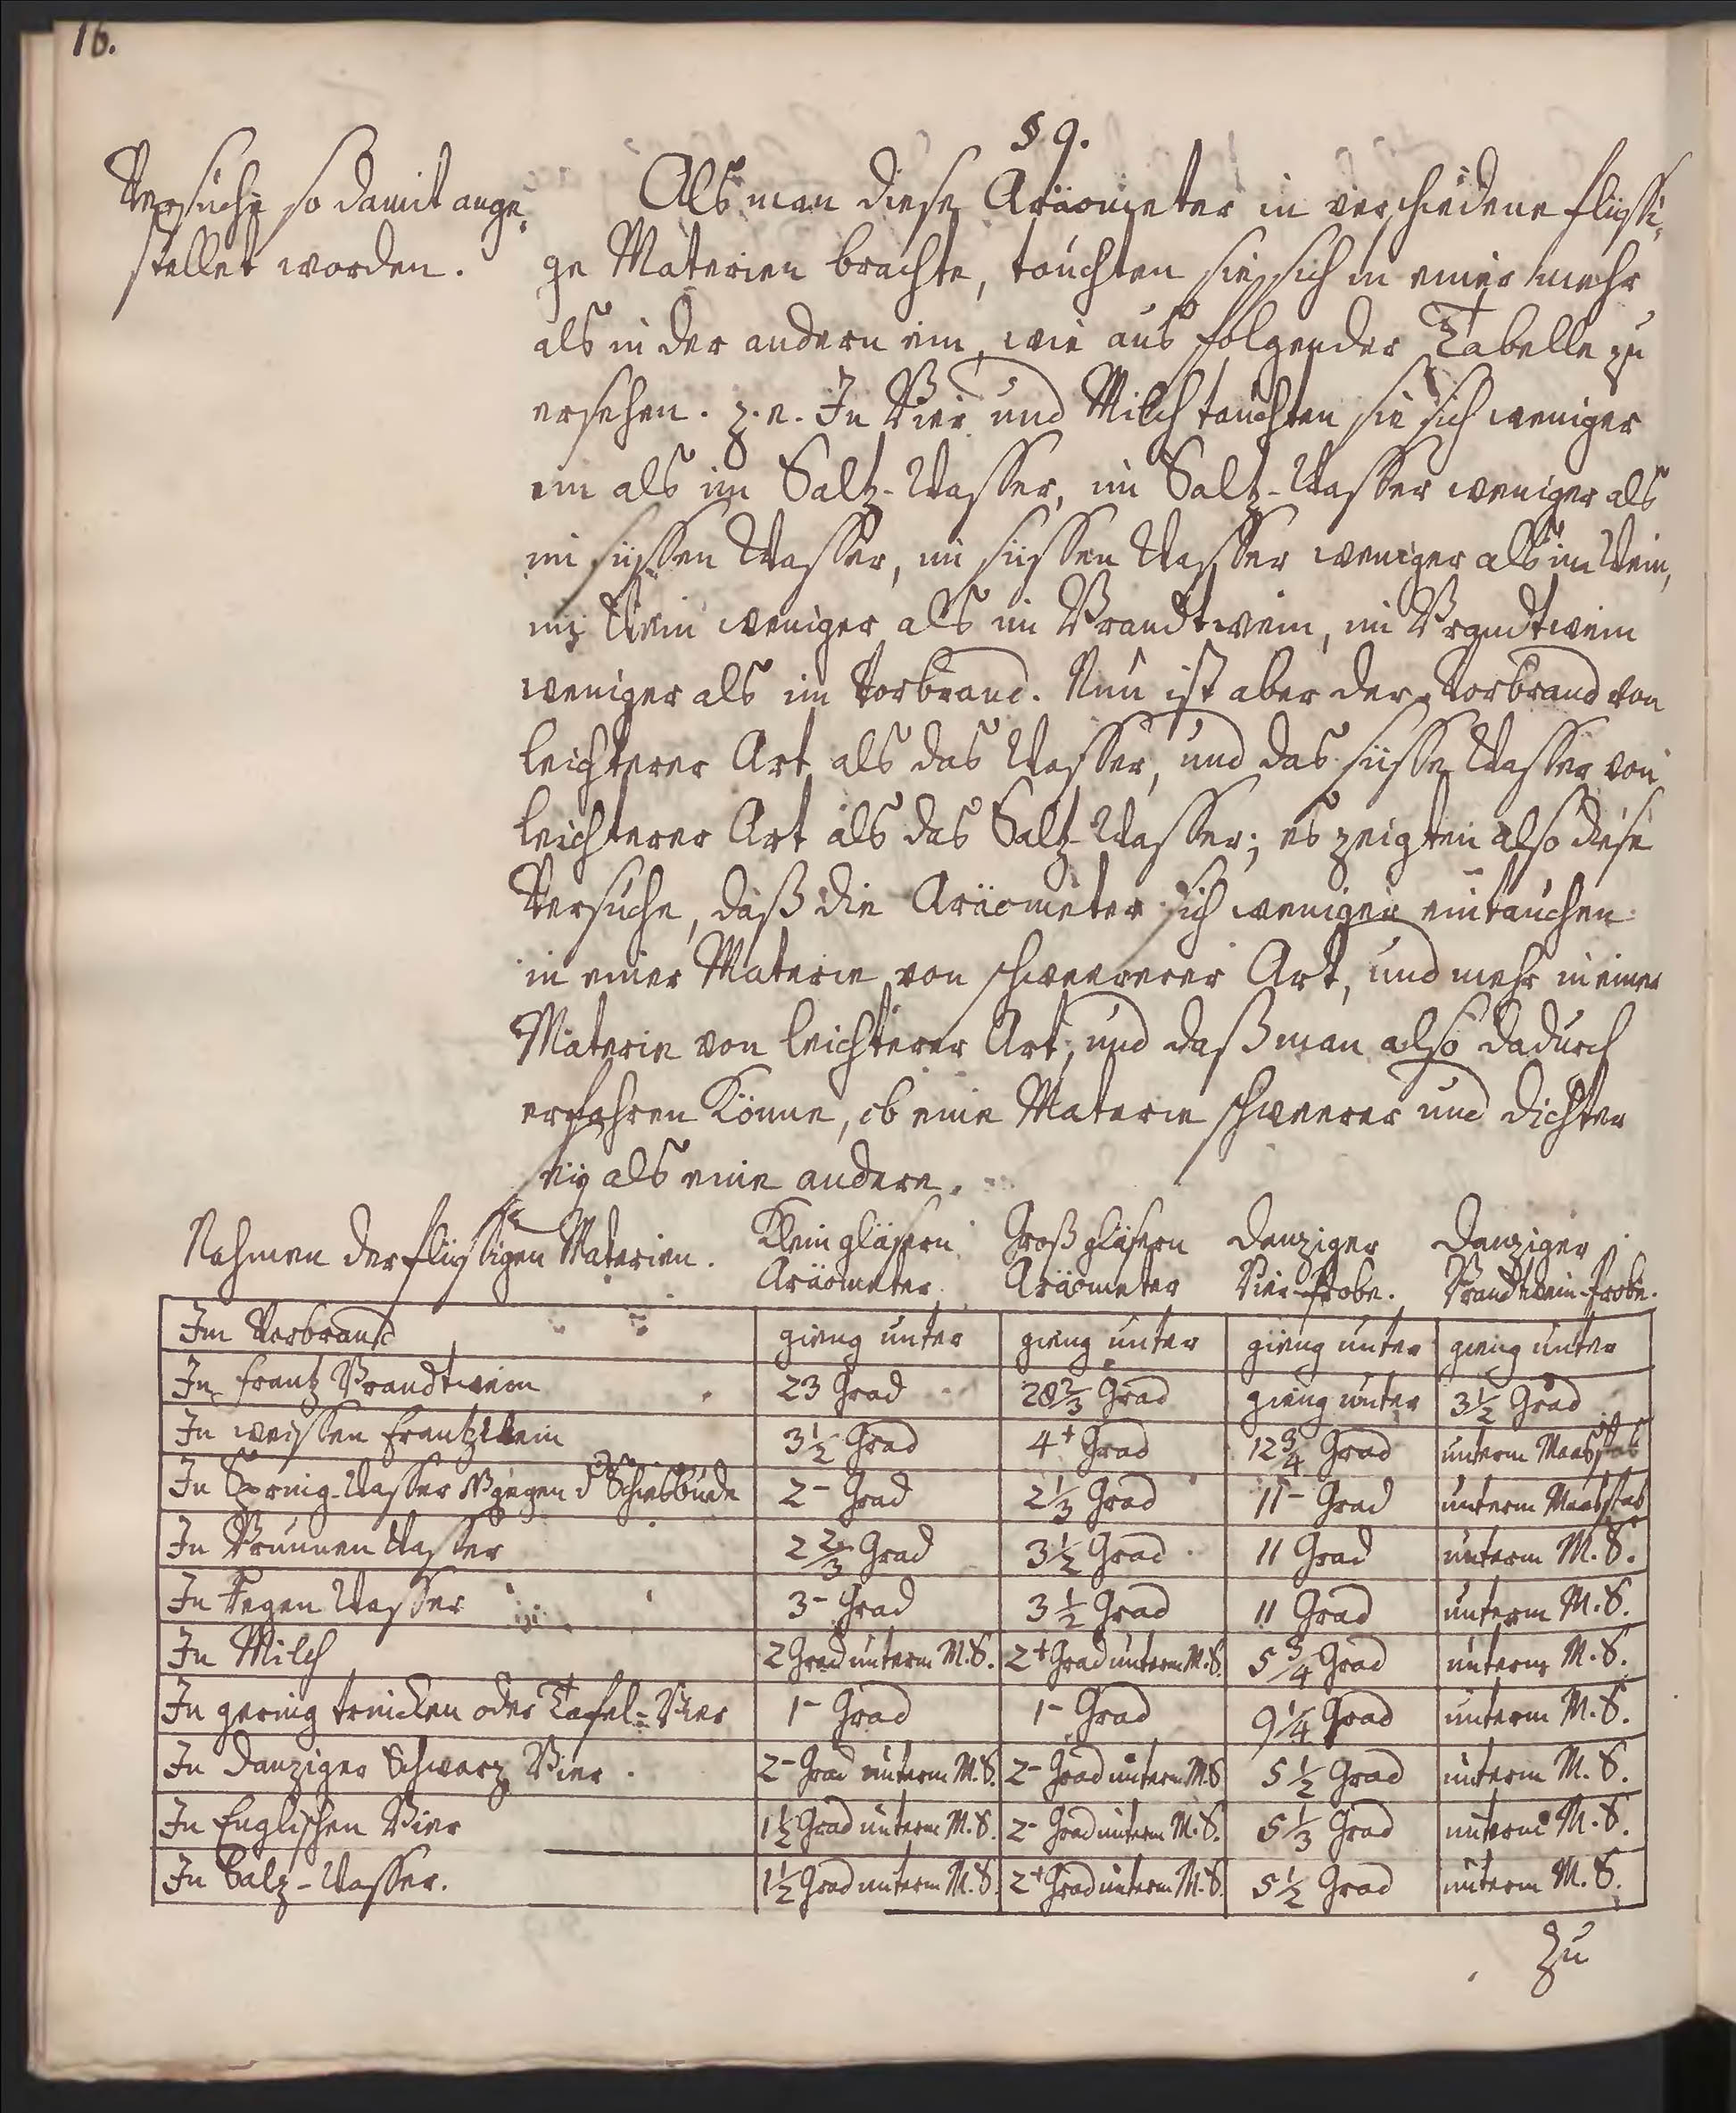 16.
§ 9.
Versuche so damit ange,
stellet worden.
Als man diese Aräometer in verschiedene flüssi,
ge Materien brachte, tauchten sie sich in einer mehr
als in der andern ein, wie aus folgender Tabelle zu
ersehen. z. e. In Bier und Milch tauchten sie sich weniger
ein als im Saltz-Wasser, im Saltz-Wasser weniger als
im süssen Wasser, im süssen Wasser weniger als im Wein,
im Wein weniger als im Brandtwein, im Brandtwein
weniger als im Vorbrand. Nun ist aber der Vorbrand von
leichterer Art als das Wasser, und das süsse Wasser von
leichterer Art als das Saltz-Wasser; es zeigten also diese
Versuche, daß die Aräometer sich weniger eintauchen
in einer Materie von schweererer Art, und mehr in einer
Materie von leichterer Art, und daß man also dadurch
erfahren könne, ob eine Materie schweerer und dichter
sey als eine andere.
Nahmen der flüssigen Materien. Klein gläsern Aräometer. Groß gläsern Aräometer Danziger Bier-Probe. Danziger Brandtwein-Probe.
Im Vorbrand gieng unter gieng unter gieng unter gieng unter
In Frantz Brandtwein 23 Grad 28 2/3 Grad gieng unter 3 1/2 Grad
In weissen Frantzwein 3 1/2 Grad 4+ Grad 12 3/4 Grad unterm Maasstab
In Spring-Wasser gegen d Schiesbude 2- Grad 2 1/3 Grad 11- Grad unterm Maasstab
In Brunnen Wasser 2 2/3 Grad 3 1/2 Grad 11 Grad unterm M. S.
In Regen Wasser 3- Grad 3 1/2 Grad 11 Grad unterm M. S.
In Milch 2 Grad unterm M. S. 2+ Grad unterm M. S. 5 3/4 Grad unterm M. S.
In gering trincken oder Tafel-Bier 1- Grad 1- Grad 9 1/4 Grad unterm M. S.
In Danziger Schwarz Bier. 2- Grad unterm M. S. 2- Grad unterm M. S 5 1/2 Grad unterm M. S.
In Englischen Bier 1 1/2 Grad unterm M. S. 2- Grad unterm M. S. 5 1/3 Grad unterm M. S.
In Salz-Wasser. 1 1/2 Grad unterm M. S. 2+ Grad unterm M. S. 5 1/2 Grad unterm M. S.
Zu